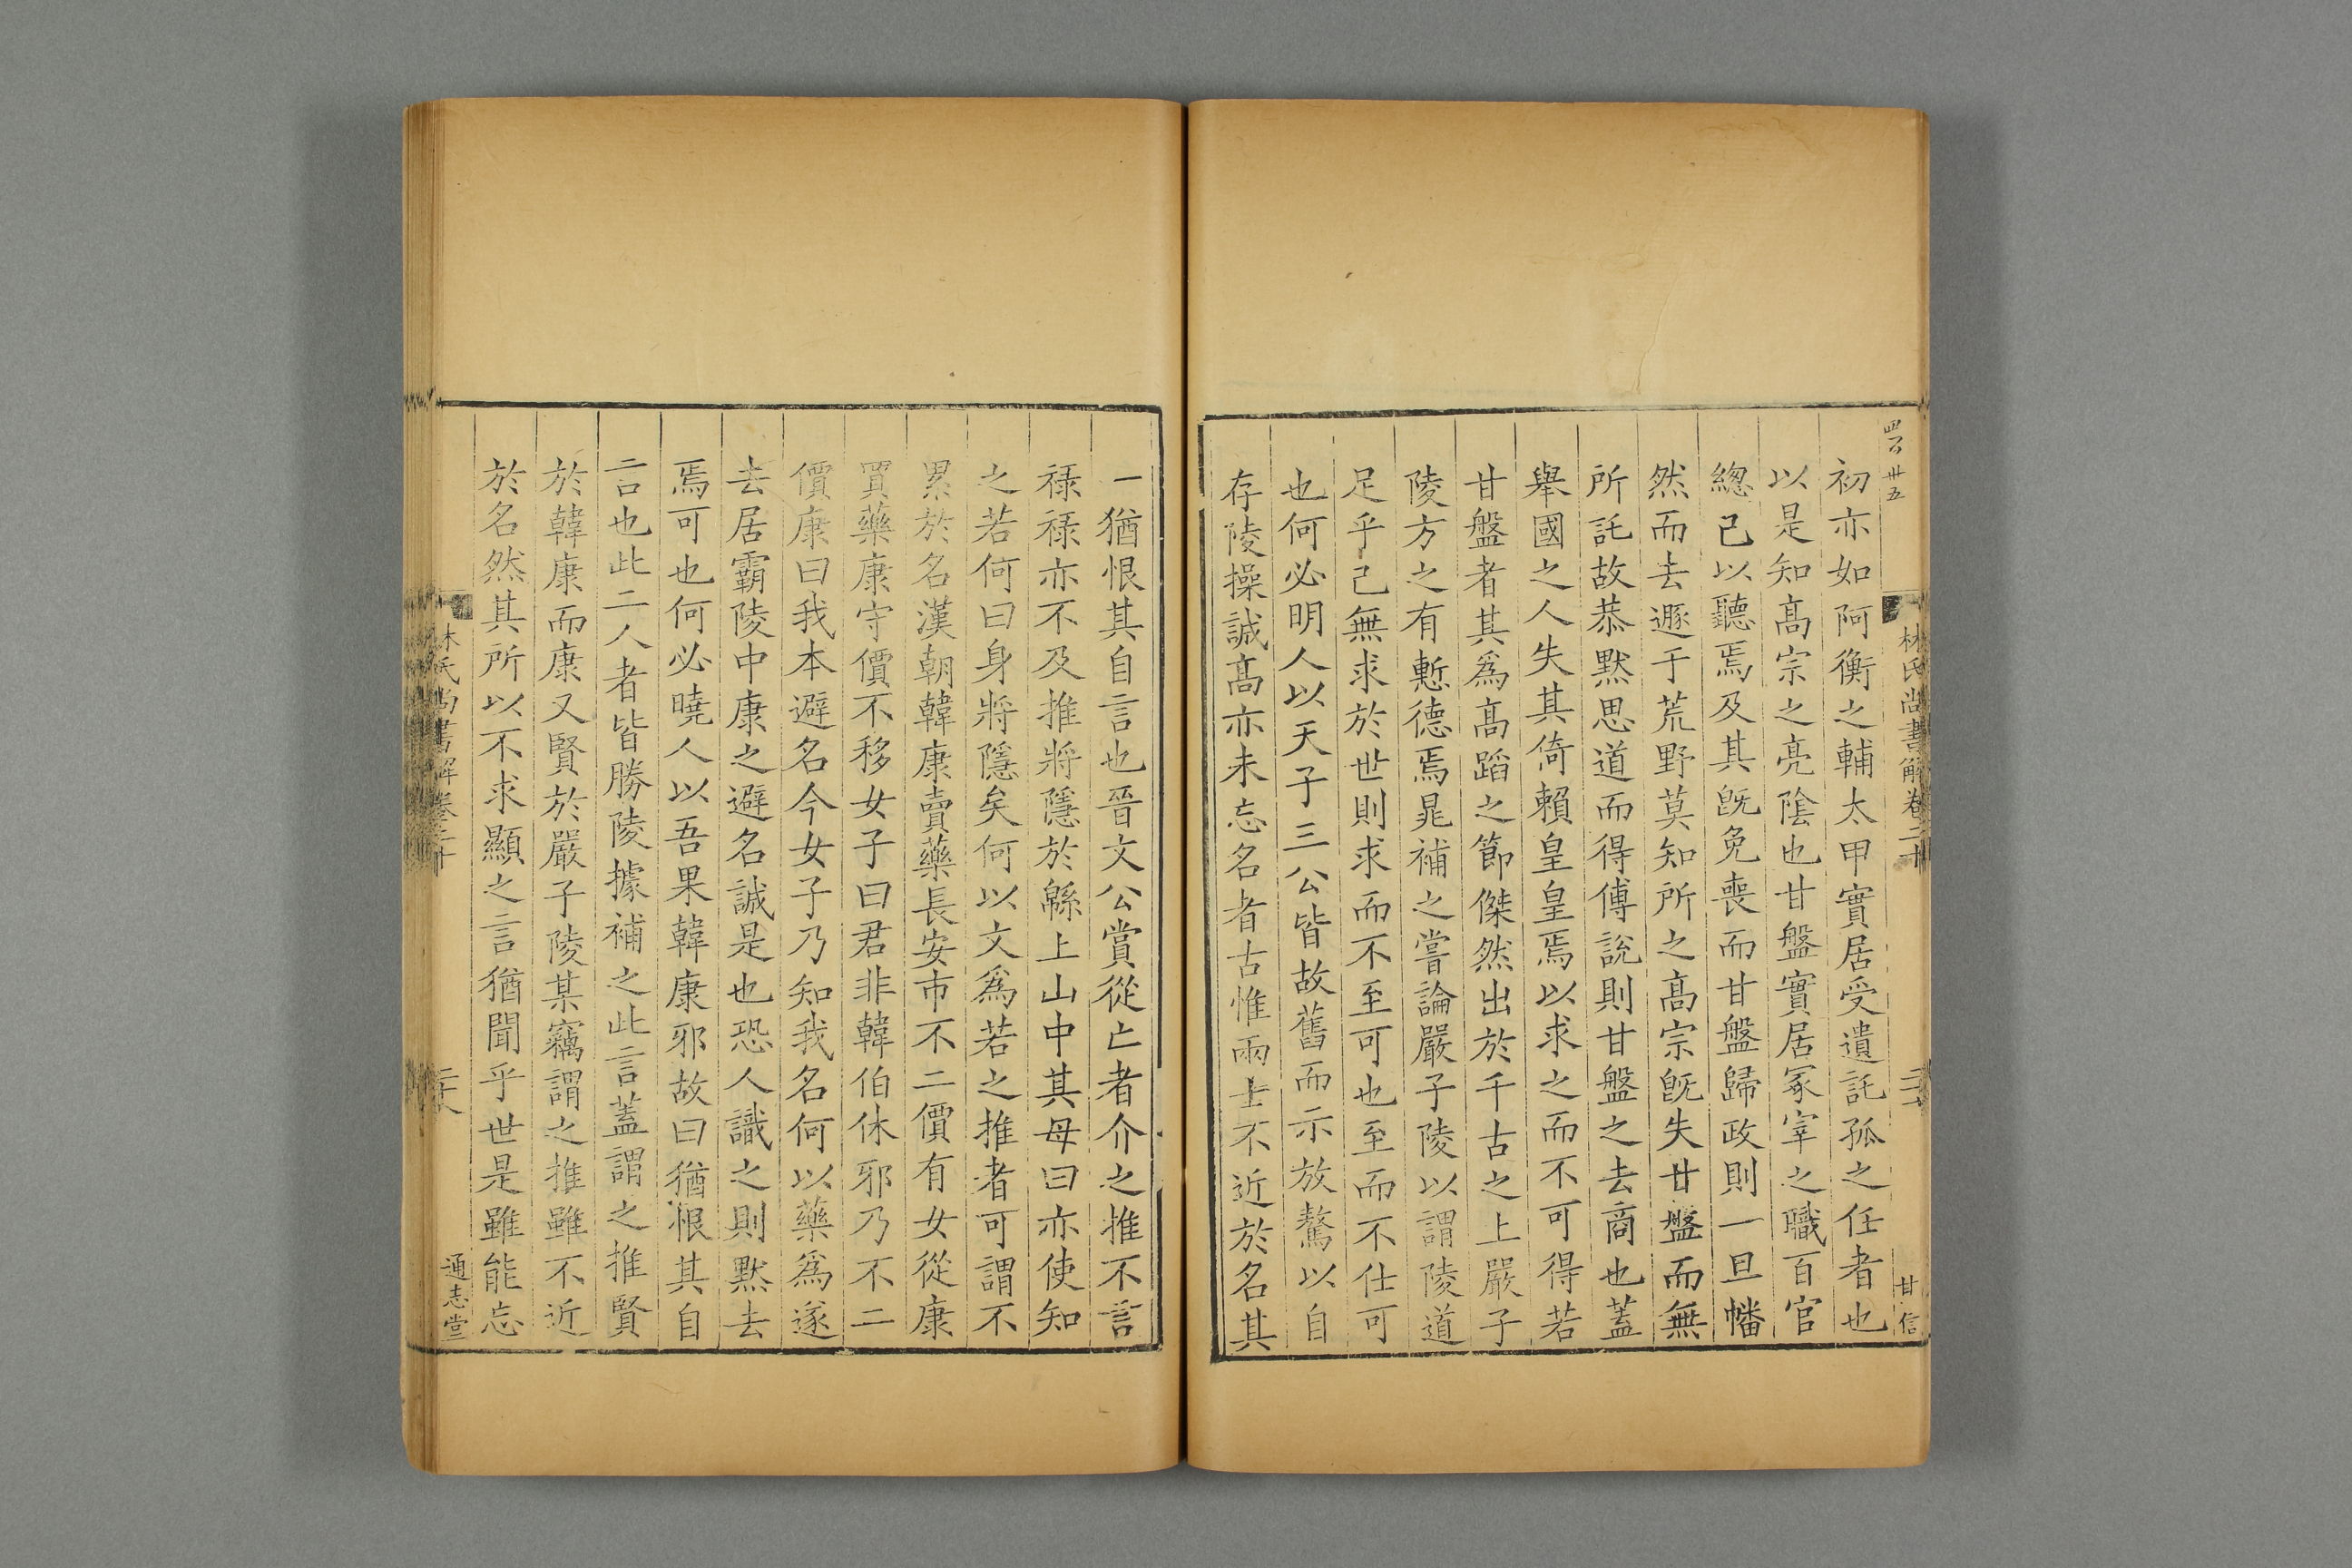 初亦如阿衡之輔太甲實居受遺託孤之任者也
以是知髙宗之亮陰也甘盤實居冢宰之職百官
緫己以聽焉及其旣免喪而甘盤歸政則一旦幡
然而去遯于荒野莫知所之髙宗旣失甘盤而無
所託故恭默思道而得傅說則甘盤之去商也蓋
舉國之人失其倚賴皇皇焉以求之而不可得若
甘盤者其爲髙蹈之節傑然出於千古之上嚴子
陵方之有慙德焉晁補之嘗論嚴子陵以謂陵道
足乎己無求於世則求而不至可也至而不仕可
也何必明人以天子三公皆故舊而示放驁以自
存陵操誠髙亦未忘名者古惟兩士不近於名其
林氏尚書解卷二十
甘信
一猶恨其自言也晉文公賞從亡者介之推不言
祿祿亦不及推將隱於緜上山中其母曰亦使知
之若何曰身將隱矣何以文爲若之推者可謂不
累於名漢朝韓康賣藥長安市不二價有女從康
買藥康守價不移女子曰君非韓伯休邪乃不二
價康曰我本避名今女子乃知我名何以藥爲遂
去居霸陵中康之避名誠是也恐人識之則默去
焉可也何必曉人以吾果韓康邪故曰猶恨其自
言也此二人者皆勝陵據補之此言蓋謂之推賢
於韓康而康又賢於嚴子陵某竊謂之推雖不近
於名然其所以不求顯之言猶聞乎世是雖能忘
林氏尚書解卷二十
通志堂